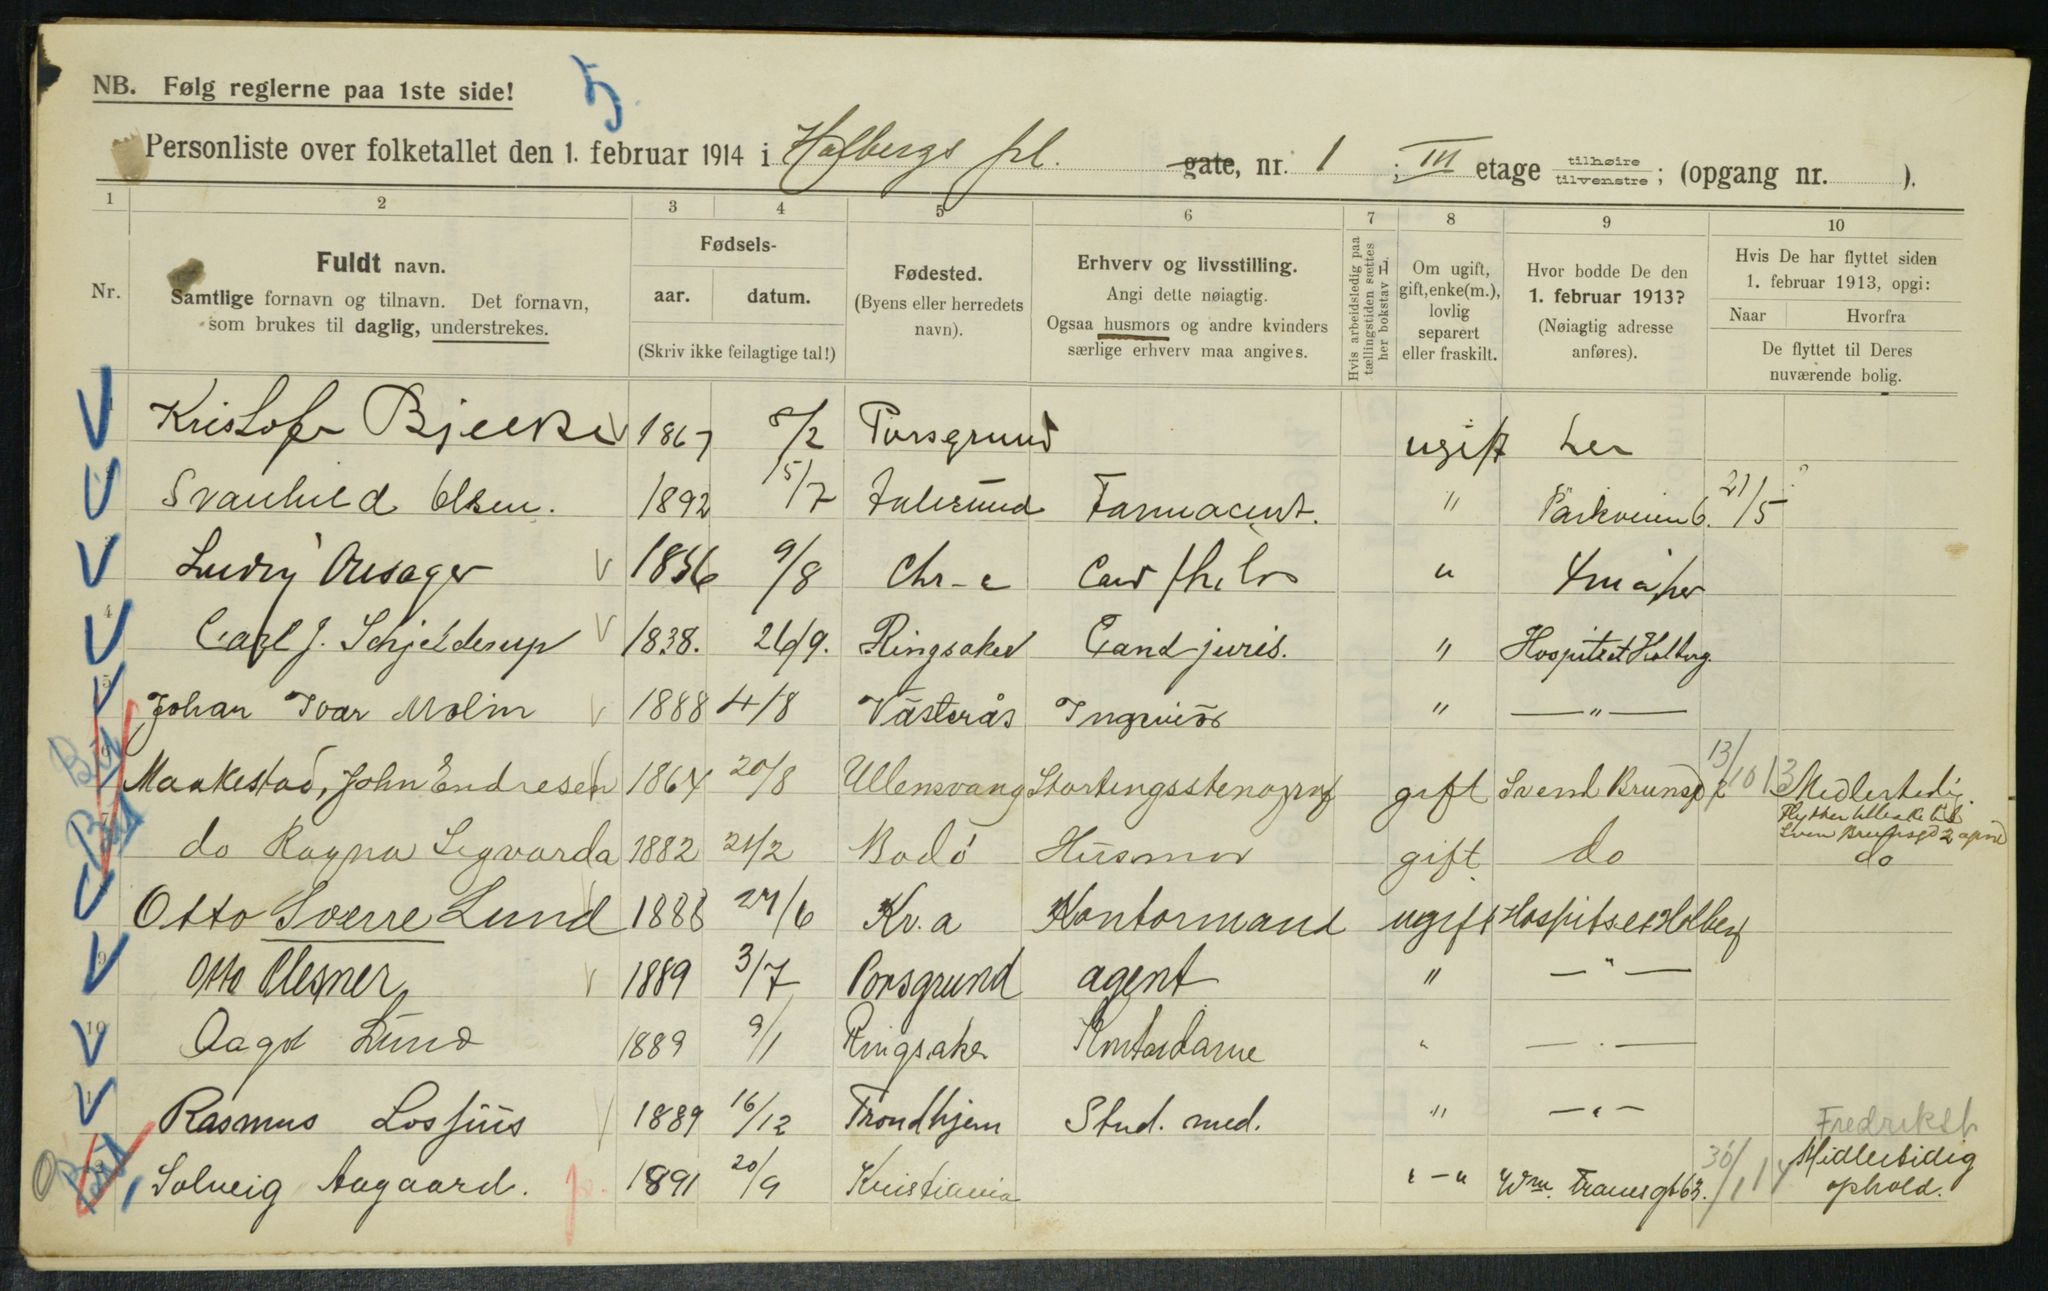 NB. Følg reglerne paa 1ste side!
5
Personliste over folketallet den 1. februar 1914 i Holbergs pl. gate, nr. 1 ; III etage tilhøire tilvenstre; (opgang nr. ).
1 2 3 4 5 6 7 8 9 10
Nr.
Fuldt navn.
Samtlige fornavn og tilnavn. Det fornavn,
som brukes til daglig, understrekes.
Fødsels-
aar. datum.
(Skriv ikke feilagtige tal!)
Fødested.
(Byens eller herredets
navn).
Erhverv og livsstilling.
Angi dette nøiagtig.
Ogsaa husmors og andre kvinders
særlige erhverv maa angives.
Hvis arbeidsledig paa
tællingstiden sættes
her bokstav L.
Om ugift,
gift, enke(m.),
lovlig
separert
eller fraskilt.
Hvor bodde De den
1. februar 1913?
(Nøiagtig adresse
anføres).
Hvis De har flyttet siden
1. februar 1913, opgi:
Naar Hvorfra
De flyttet til Deres
nuværende bolig.
Kristofer Bjerke 1867 8/2 Porsgrund ugift her
Svanhild Olsen. 1892 15/7 Farmaceut. " Parkveien 6. 21/5
Ludvig Ousager 1856 9/8 Chr-a Cand philos "
4 Carl J. Schjelderup 1838. 26/9. Ringsaker Cand juris. " Hospitset Holberg.
5 Johan Ivar Molin 1888 4/8 Västerås Ingeniör " — " —
Maakestad, John Endresen 1864 20/8 Ullensvang Stortingsstenograf gift Svend Brunsg 2 13/10 13 Midlertidig.
Flytter tilbake til
Sven Brunsgd 2 april
7 do Ragna Sigvarda 1882 21/2 Bodö Husmor gift do do
Otto Sverre Lund 1888 27/6 Kr.a Kontormand ugift Hospitset Holberg
9 Otto Clesner 1889 3/7 Porsgrund agent " — " —
10 Aagot Lund 1889 9/1 Ringsaker Kontordame " — " —
Rasmus Losjius 1889 16/12 Trondhjem Stud. med. " — " —
Fredrikst
Solveig Aagaard. 1891 20/9 Kristiania " — " Wm. Tranesgt 63. 30/1 14 Midlertidig
ophold.